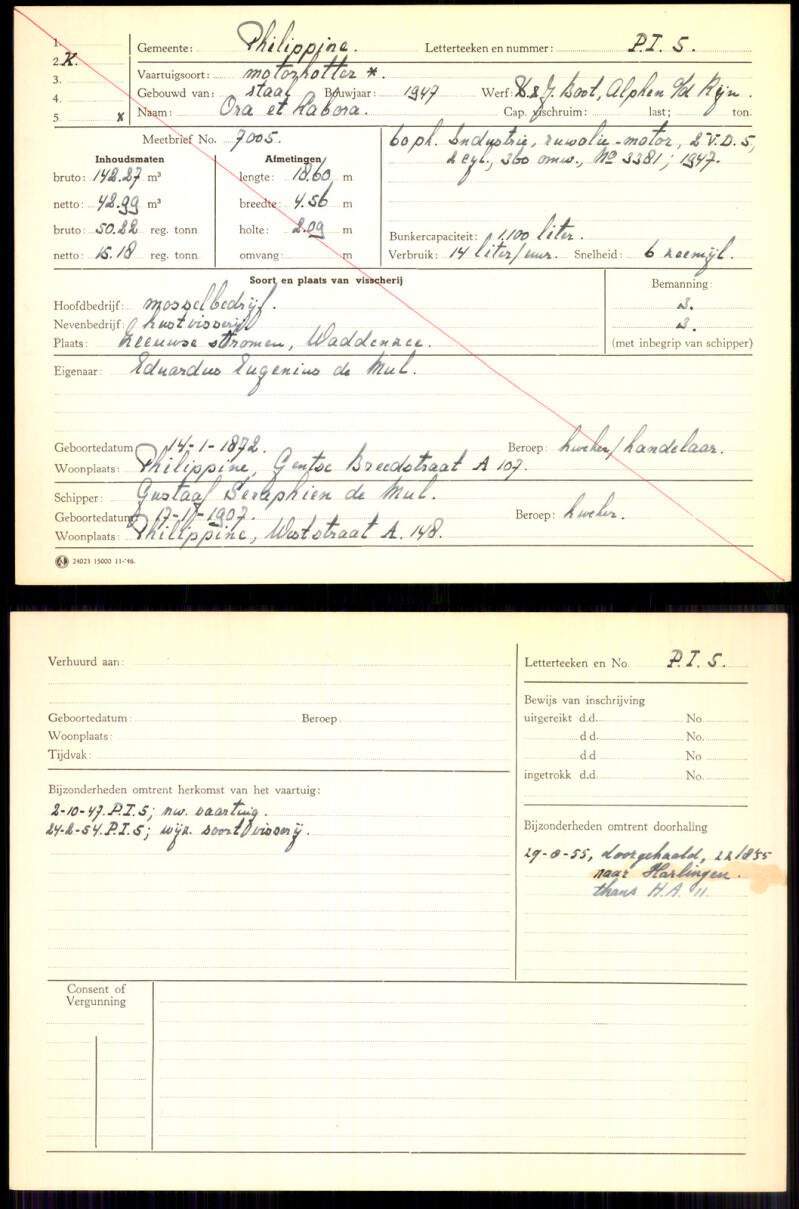 1.
2. K.
3.
4.
5. x
Gemeente: Philippine. Letterteeken en nummer: P.I. 5.
Vaartuigsoort: motorkotter *.
Gebouwd van: staal Bouwjaar: 1947 Werf: D & J. Boot, Alphen a/d Rijn.
Naam: Ora et Labora. Cap. vischruim: last; ton.
Meetbrief No. 7005.
Inhoudsmaten
bruto: 142.27 m³
netto: 42.99 m³
bruto: 50.22 reg. tonn
netto: 15.18 reg. tonn.
Afmetingen
lengte: 18.60 m
breedte: 4.56 m
holte: 2.09 m
omvang: m
60 pk. Industrie, ruwolie-motor, 2 V.D. 5,
2 cyl., 360 omw., No 3381; 1947.
Bunkercapaciteit: 1.100 liter.
Verbruik: 14 liter/uur. Snelheid: 6 zeemijl.
Soort en plaats van visscherij
Hoofdbedrijf: mosselbedrijf.
Nevenbedrijf: kustvisserij
Plaats: Zeeuwse stromen, Waddenzee.
Bemanning:
3.
3.
(met inbegrip van schipper)
Eigenaar: Eduardus Eugenius de Mul.
Geboortedatum 14-1-1872. Beroep: kweker/handelaar.
Woonplaats: Philippine, Gentse Breedstraat A 107.
Schipper: Gustaaf Seraphien de Mul.
Geboortedatum 17-11-1907. Beroep: kweker.
Woonplaats: Philippine, Weststraat A. 148.
24023 15000 11-'46.
Verhuurd aan:
Geboortedatum: Beroep.
Woonplaats:
Tijdvak:
Letterteeken en No. P.I. 5.
Bewijs van inschrijving
uitgereikt d.d. No
d d No.
d d No
ingetrokk d.d. No.
Bijzonderheden omtrent herkomst van het vaartuig:
2-10-47. P.I. 5; nw. vaartuig.
24-2-54. P.I. 5; wijz. soort visserij.
Bijzonderheden omtrent doorhaling
29-8-55, doorgehaald, 22/8 55
naar Harlingen.
thans H.A. 11
Consent of
Vergunning